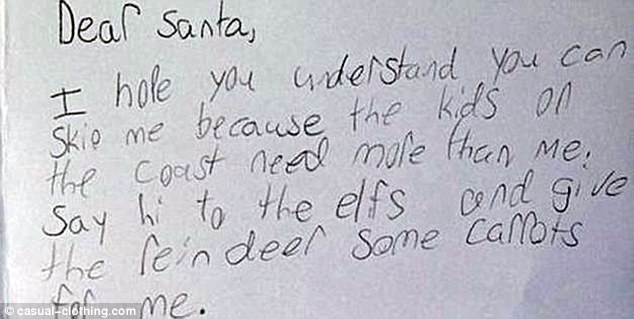 Dear Santa,
I hope you understand you can
skip me because the kids on
the coast need more than me.
Say hi to the elfs and give
the reindeer some carrots
for me.
© casual-clothing.com